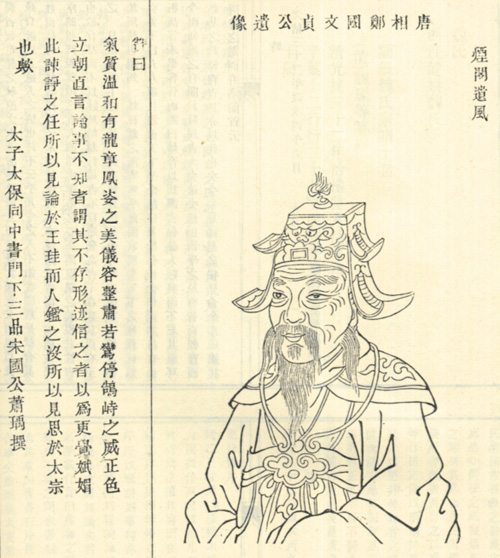 唐相鄭國文貞公遺像
煙閣遺風
贊曰
氣質溫和有龍章鳳姿之美儀容整肅若鸞停鵠峙之威正色
立朝直言論事不知者謂其不存形迹信之者以爲更覺斌媚
此諫諍之任所以見論於王珪而人鑑之沒所以見思於太宗
也歟
太子太保同中書門下三品宋國公蕭瑀撰